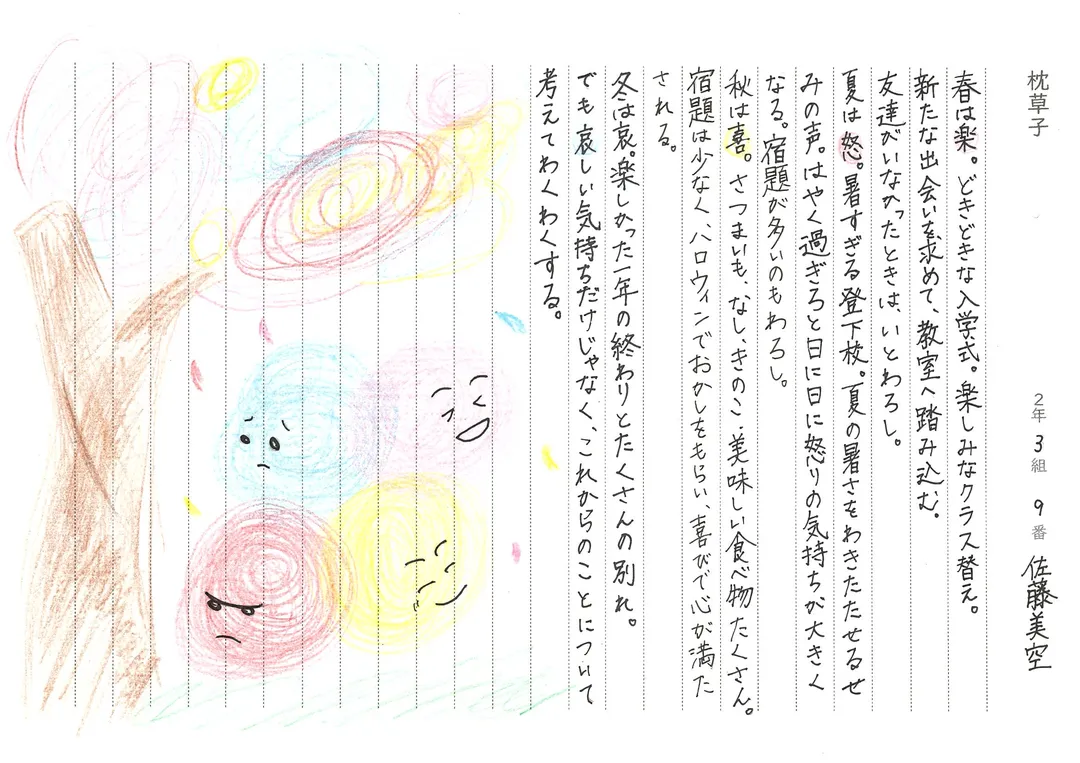 枕草子
2年 3組 9番 佐藤美空
春は楽。どきどきな入学式。楽しみなクラス替え。
新たな出会いを求めて、教室へ踏み込む。
友達がいなかったときは、いとわろし。
夏は怒。暑すぎる登下校。夏の暑さをわきたたせるせ
みの声。はやく過ぎろと日に日に怒りの気持ちが大きく
なる。宿題が多いのもわろし。
秋は喜。さつまいも、なし、きのこ…美味しい食べ物たくさん。
宿題は少なく、ハロウィンでおかしをもらい、喜びで心が満た
される。
冬は哀。楽しかった一年の終わりとたくさんの別れ。
でも哀しい気持ちだけじゃなく、これからのことについて
考えてわくわくする。